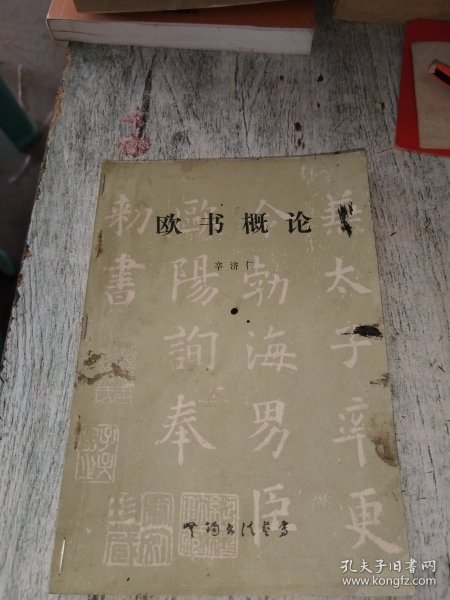 欧书概论
辛济仁
兼太子率更
令勃海男臣
歐陽詢奉
勅書
孔夫子旧书网
www.kongfz.com